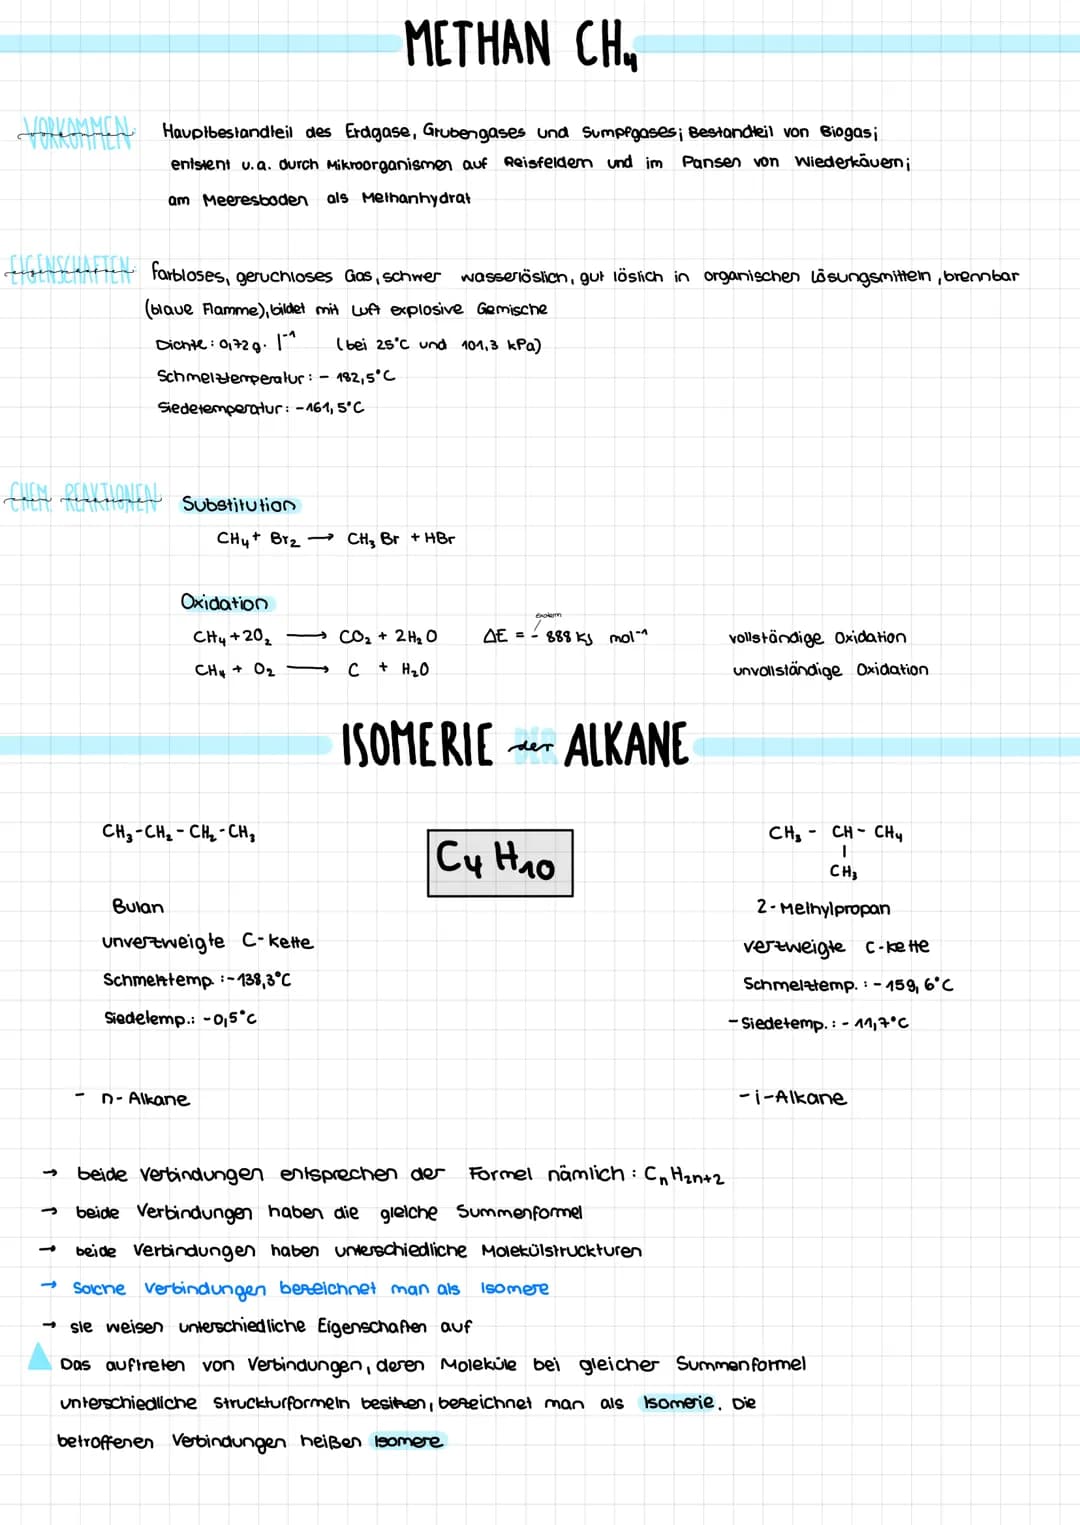 METHAN CH₄
VORKOMMEN Hauptbestandteil des Erdgase, Grubengases und Sumpfgases; Bestandteil von Biogas;
entsteht u.a. durch Mikroorganismen auf Reisfeldern und im Pansen von Wiederkäuern;
am Meeresboden als Methanhydrat
EIGENSCHAFTEN farbloses, geruchloses Gas, schwer wasserlöslich, gut löslich in organischen Lösungsmitteln, brennbar
(blaue Flamme), bildet mit Luft explosive Gemische
Dichte: 0,72 g · l⁻¹ (bei 25°C und 101,3 kPa)
Schmelztemperatur: - 182,5°C
Siedetemperatur: -161,5°C
CHEM. REAKTIONEN Substitution
CH₄ + Br₂ → CH₃ Br + HBr
Oxidation
Exoterm
CH₄ + 2O₂ → CO₂ + 2H₂O ΔE = - 888 KJ mol⁻¹ vollständige Oxidation
CH₄ + O₂ → C + H₂O unvollständige Oxidation
ISOMERIE der ALKANE
CH₃-CH₂-CH₂-CH₃ C₄H₁₀ CH₃ - CH - CH₄
|
CH₃
Butan 2-Methylpropan
unverzweigte C-Kette verzweigte C-Kette
Schmelztemp.: -138,3°C Schmelztemp.: -159,6°C
Siedetemp.: -0,5°C - Siedetemp.: - 11,7°C
- n-Alkane - i-Alkane
→ beide Verbindungen entsprechen der Formel nämlich: CₙH₂ₙ₊₂
→ beide Verbindungen haben die gleiche Summenformel
→ beide Verbindungen haben unterschiedliche Molekülstruckturen
→ Solche Verbindungen bezeichnet man als Isomere
→ sie weisen unterschiedliche Eigenschaften auf
Das auftreten von Verbindungen, deren Moleküle bei gleicher Summenformel
unterschiedliche Struckturformeln besitzen, bezeichnet man als Isomerie. Die
betroffenen Verbindungen heißen Isomere